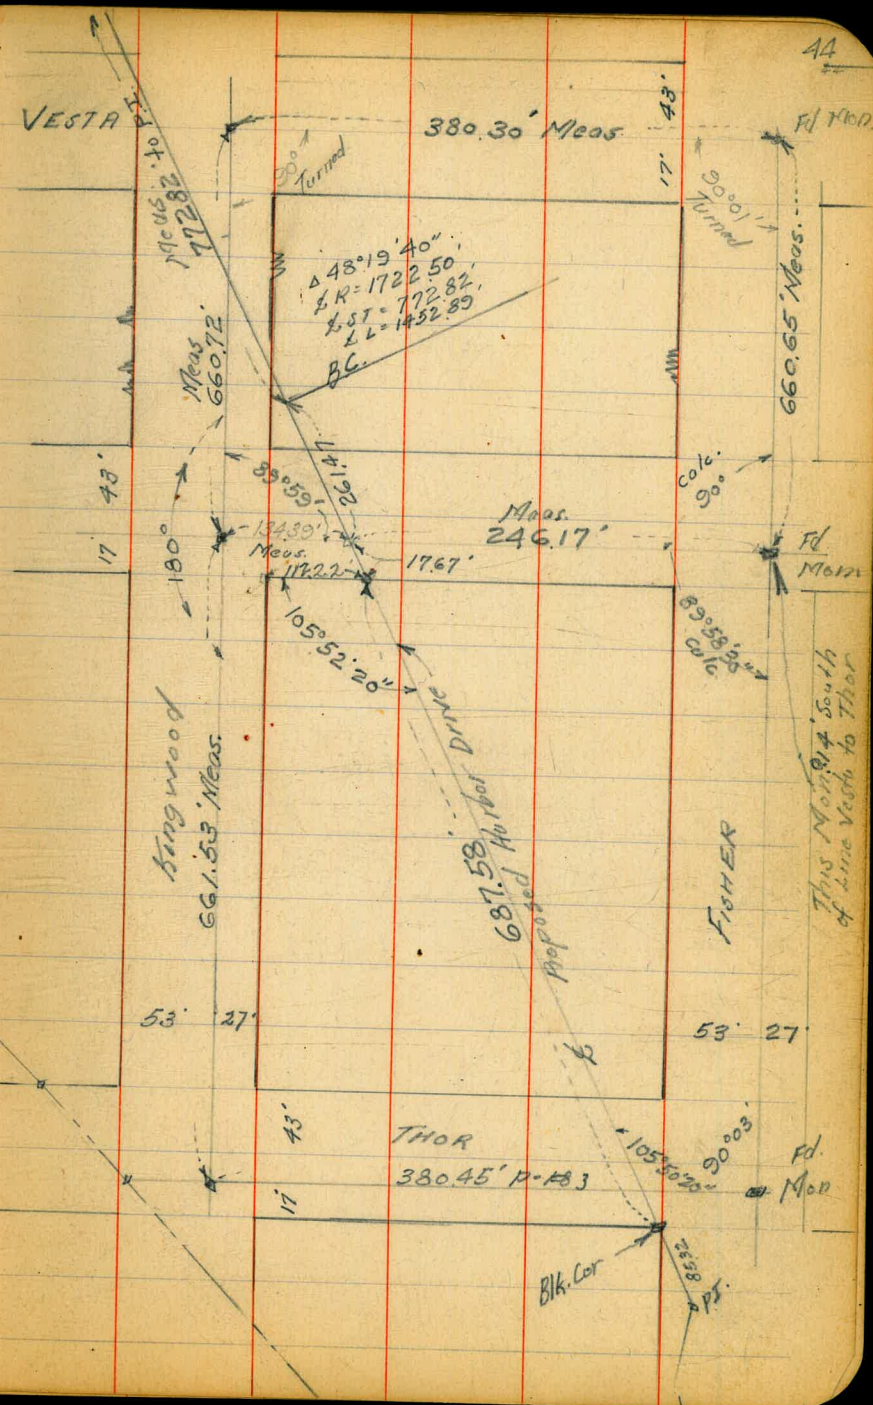 44
VESTA
Meas. to P.I.
772.82
380.30' Meas
43'
17'
Fd Mon.
90°
Turned
90°01'
Turned
Δ 48°19'40"
₵ R = 1722.50'
₵ ST = 772.82'
₵ L = 1452.89'
B.C.
Meas
660.72'
660.65' Meas.
43'
17
180°
89°59'
261.47
134.39'
Meas.
112.22
17.67'
Meas.
246.17'
Calc.
90°
Fd
Mon
105°52'20"
89°58'30"
Calc
Kingwood
661.53' Meas.
687.58
Proposed Harbor Drive
₵
FISHER
This Mon. South
of Line Vesta to Thor
53' 27'
53' 27'
43'
17'
THOR
380.45' P-183
105°50'20"
90°03'
Fd.
Mon
Blk. Cor
85.32
P.I.